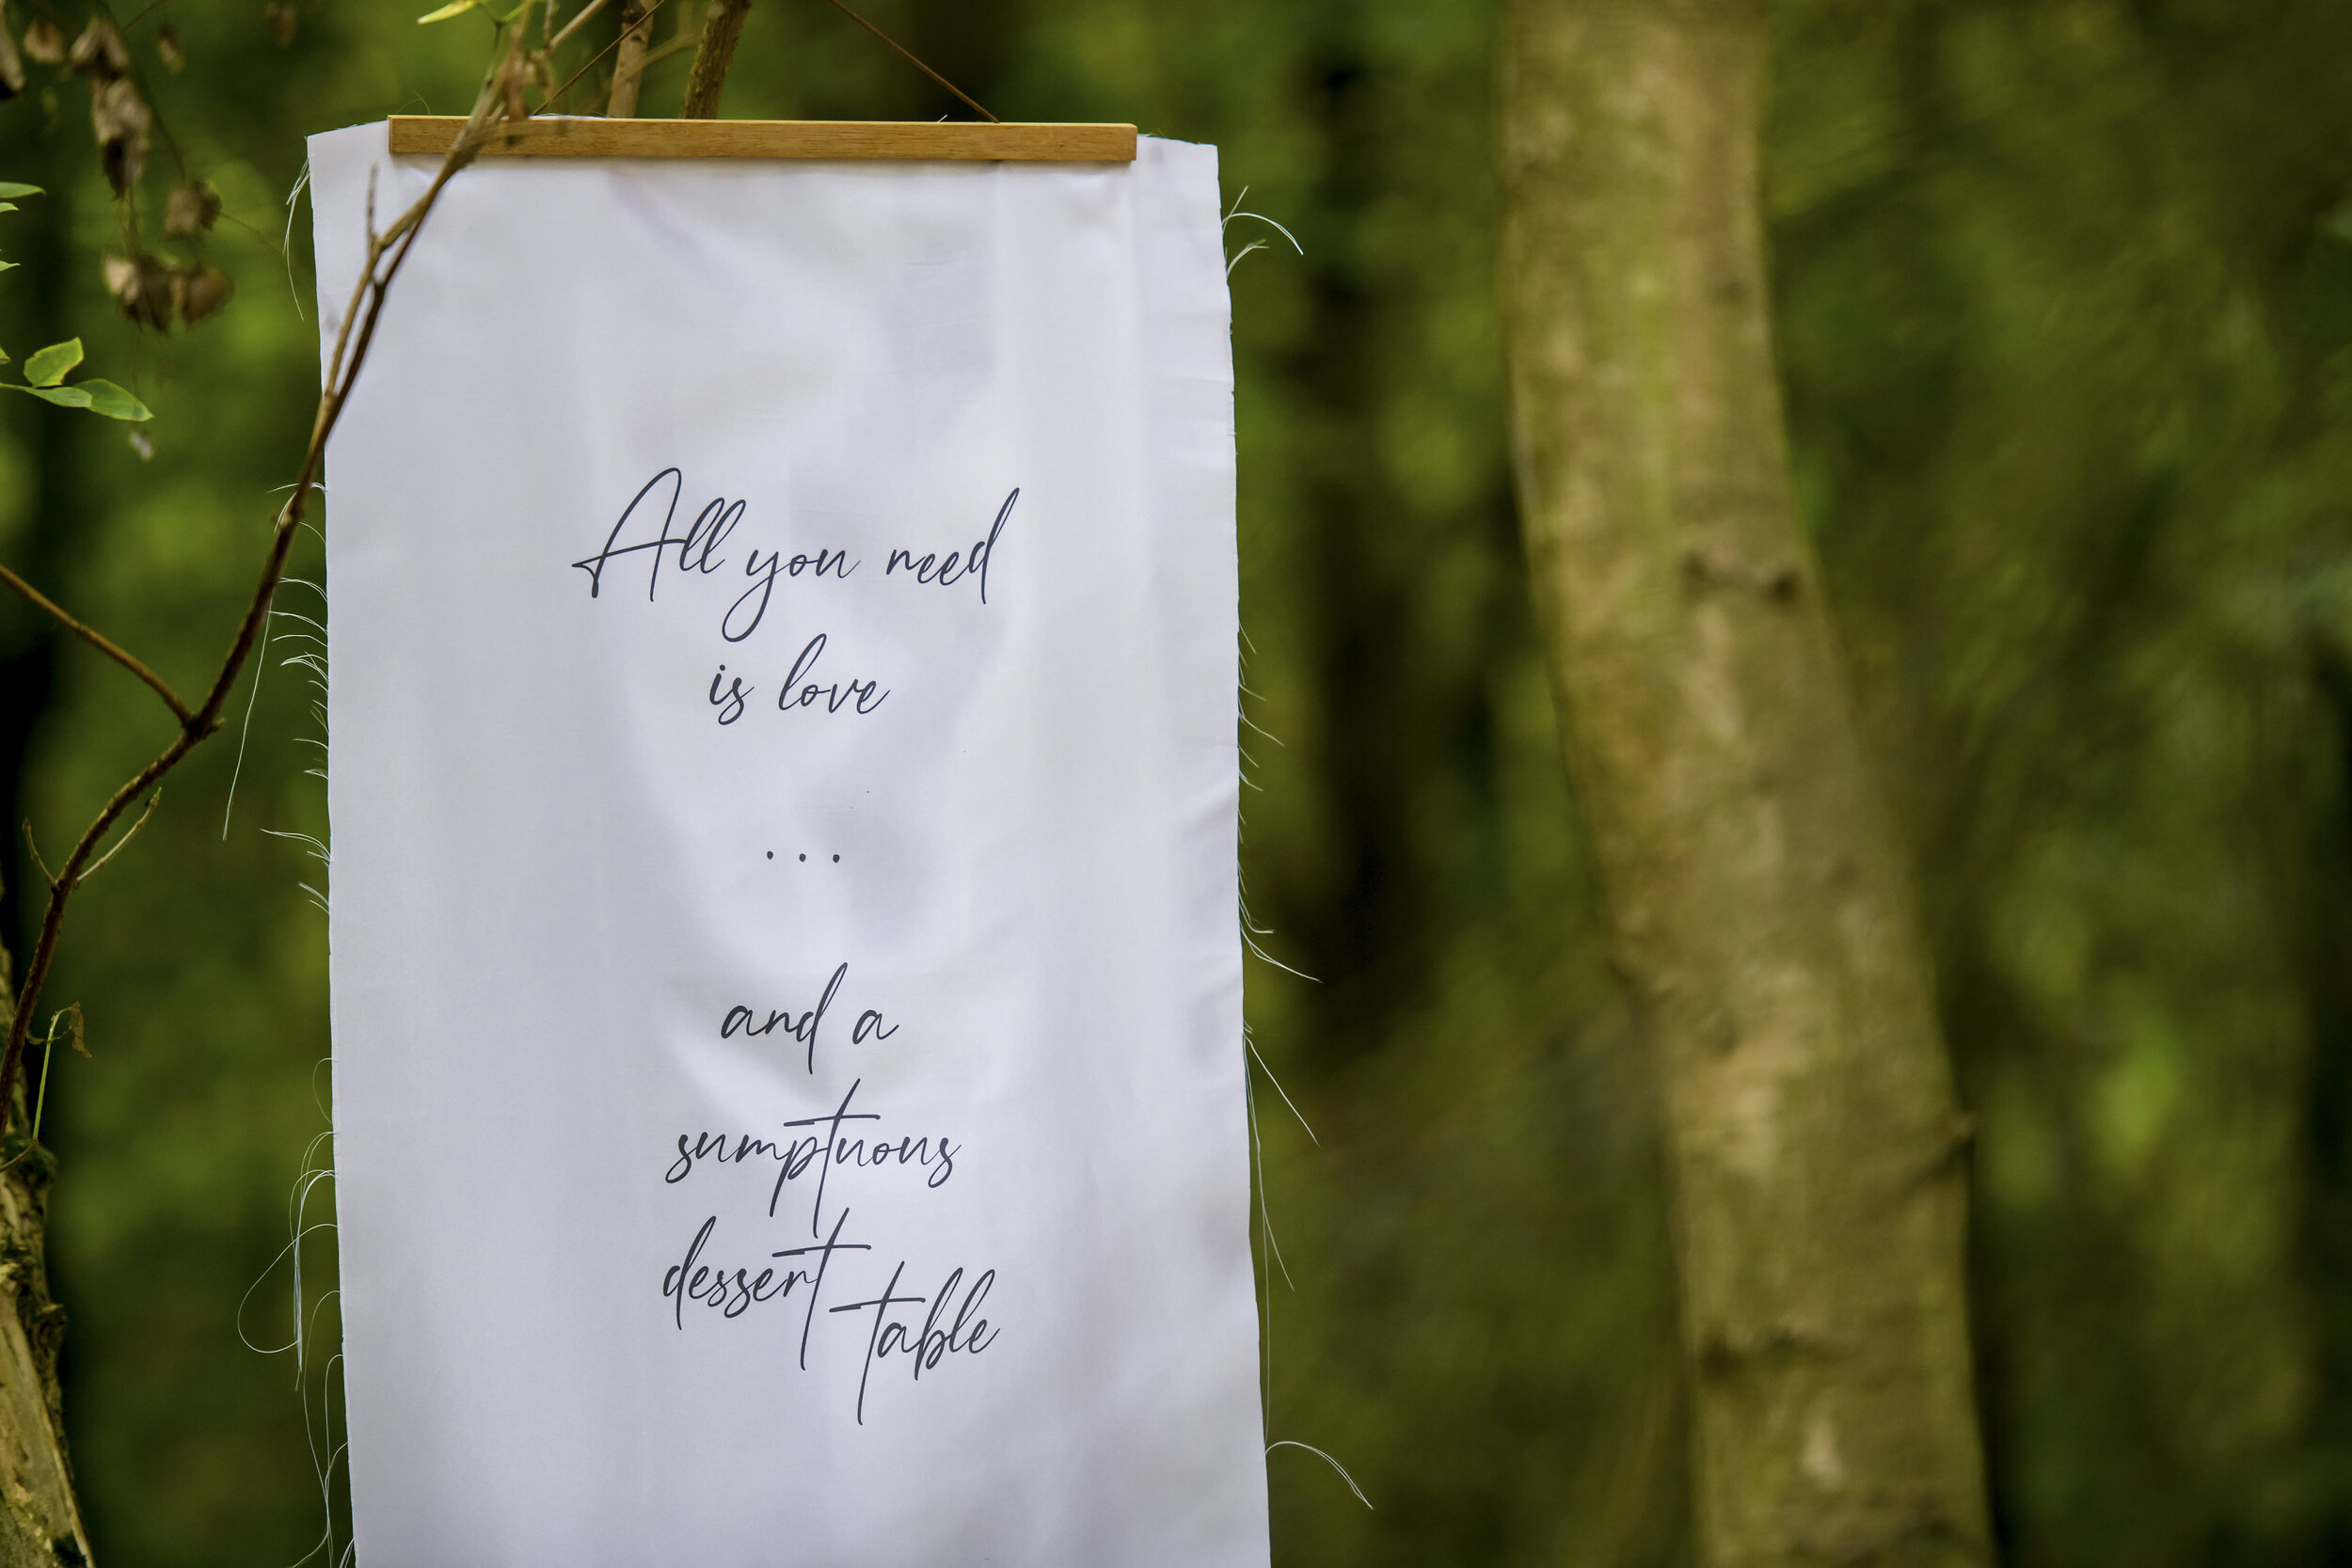 All you need
is love
...
and a
sumptuous
dessert
table